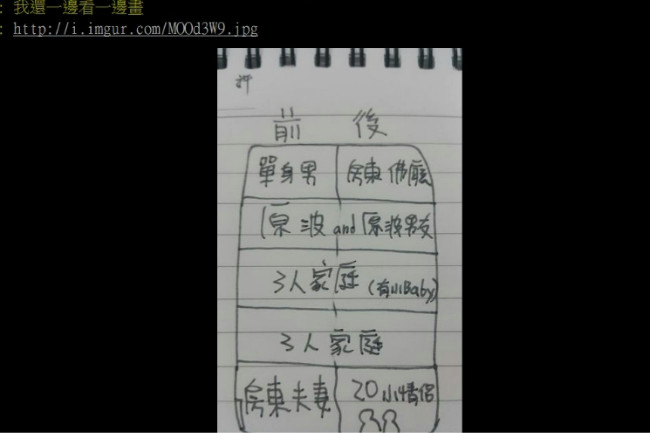 : 我還一邊看一邊畫
: http://i.imgur.com/MOOd3W9.jpg
前 後
單身男 房東佛廳
原波 and 原波男友
3人家庭 (有小Baby)
3人家庭
房東夫妻 20小情侶